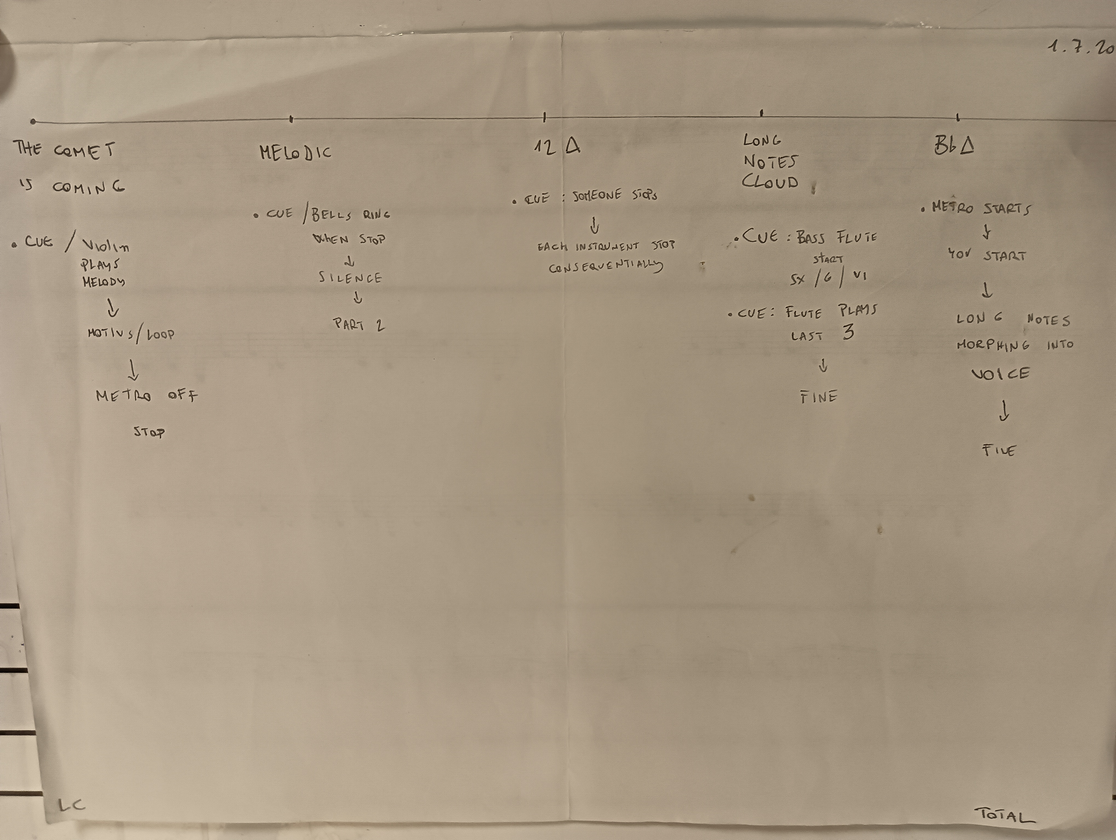 1.7.20
THE COMET
IS COMING
• CUE / Violin
PLAYS
MELODY
↓
MOTIVS/LOOP
↓
METRO OFF
STOP
MELODIC
• CUE / BELLS RING
WHEN STOP
↓
SILENCE
↓
PART 2
12 Δ
• CUE : SOMEONE STOPS
↓
EACH INSTRUMENT STOP
CONSEQUENTIALLY
LONG
NOTES
CLOUD
• CUE : BASS FLUTE
START
SX / G / VI
• CUE : FLUTE PLAYS
LAST 3
↓
FINE
Bb Δ
• METRO STARTS
↓
START
↓
LONG NOTES
MORPHING INTO
VOICE
↓
LC
TOTAL